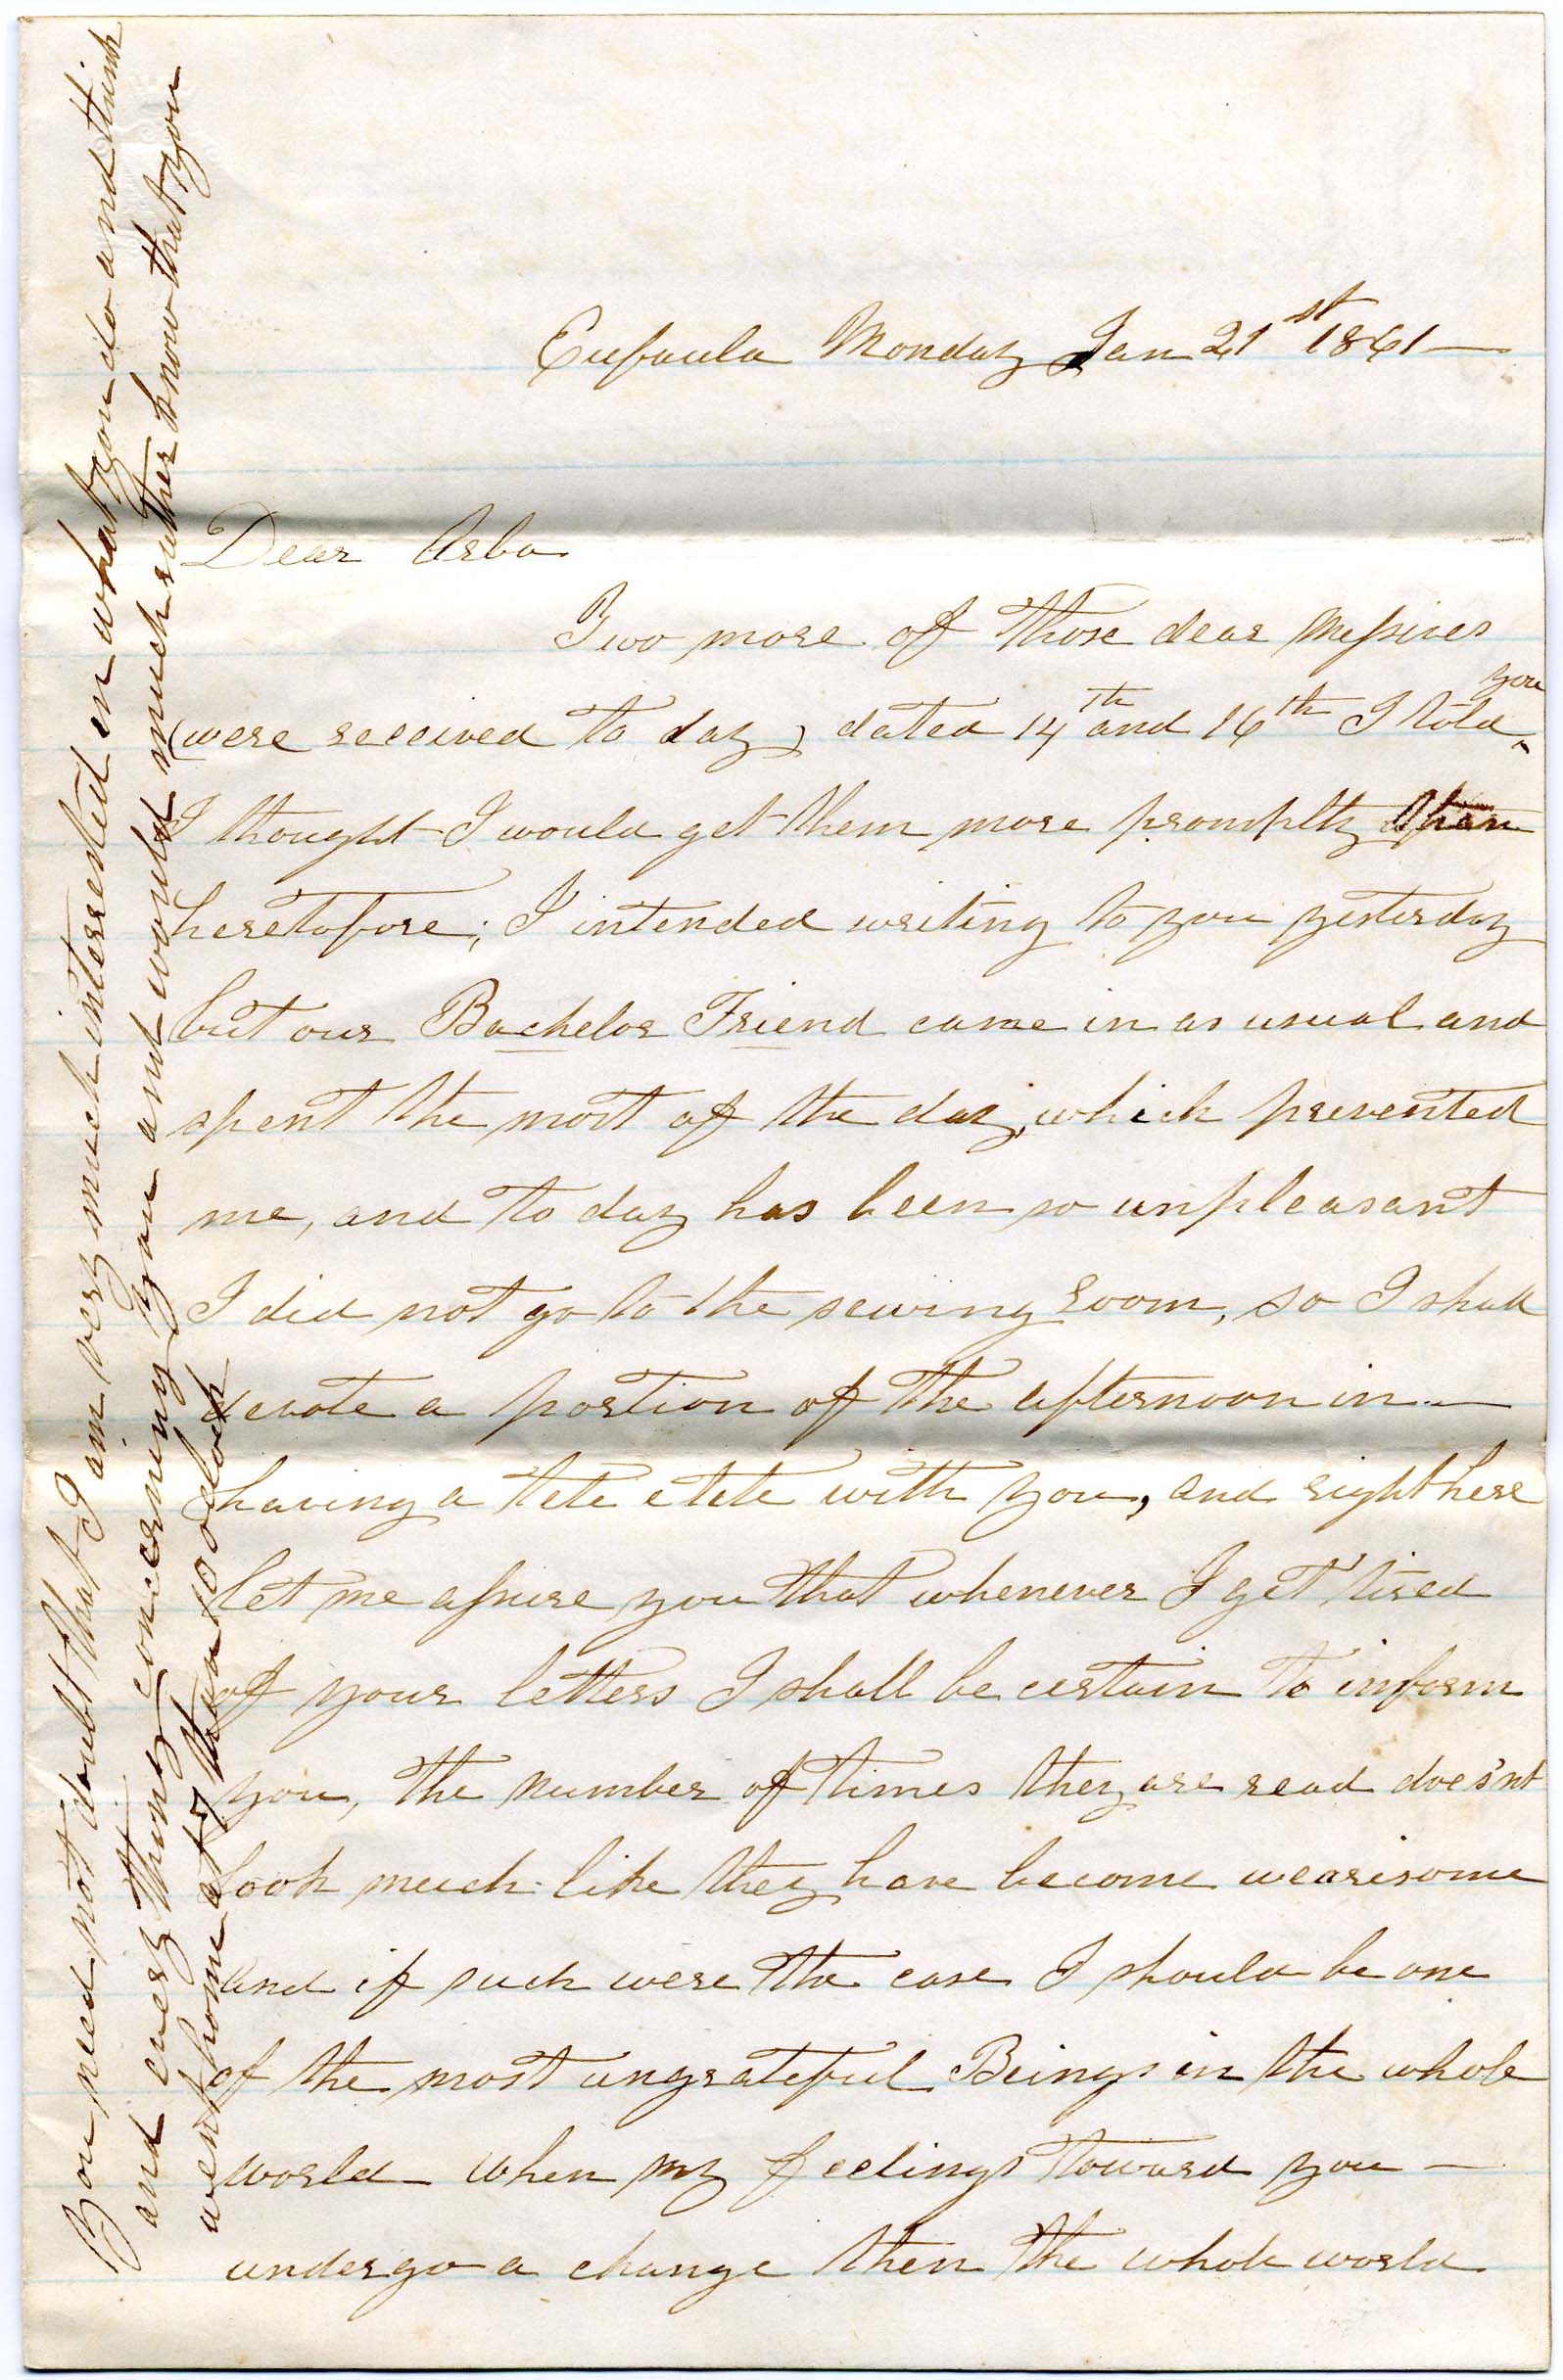 Eufaula Monday Jan 21st 1861—
Dear Arba
Two more of those dear Messives
(were received to day) dated 14th and 16th I told you
I thought I would get them more promptly than
heretofore; I intended writing to you yesterday
but our Bachelor Friend came in as usual and
spent the most of the day, which prevented
me, and to day has been so unpleasant
I did not go to the sewing room, so I shall
devote a portion of the afternoon in—
having a tete etete with you, and right here
let me assure you that whenever I get tired
of your letters I shall be certain to inform
you, the number of times they are read does'nt
look much like they have become wearisome
and if such were the case I should be one
of the most ungrateful Beings in the whole
world— when my feelings toward you—
undergo a change then the whole world
You need not doubt that I am very much interested in what you do and think
and every thing concerning you and would much rather know that you
went home at 7 than 10 oclock